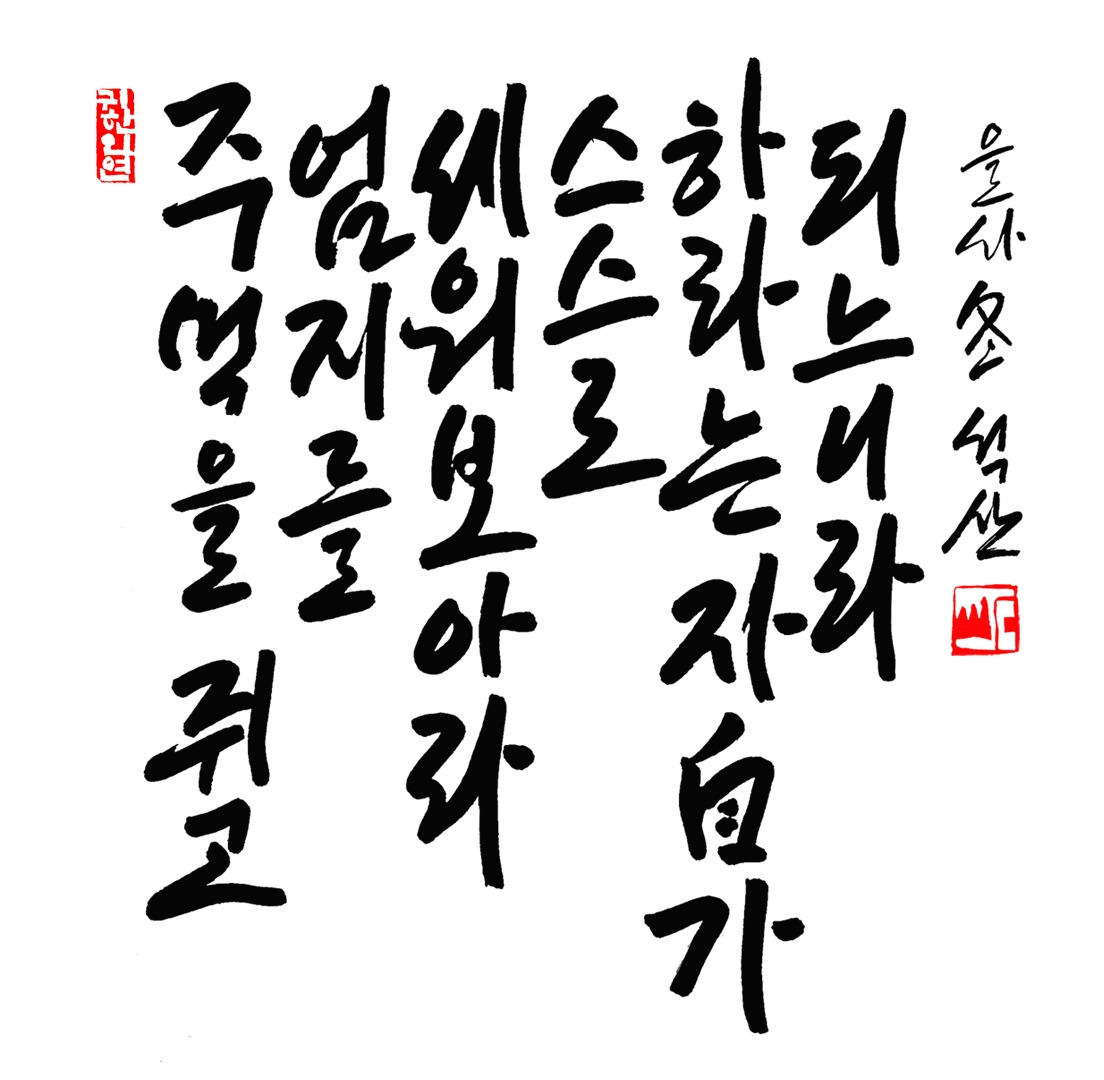 귀한인연
주먹을 쥐고
엄지를
세워보아라
스스로
하라는 자自가
되느니라
을사 冬 석산